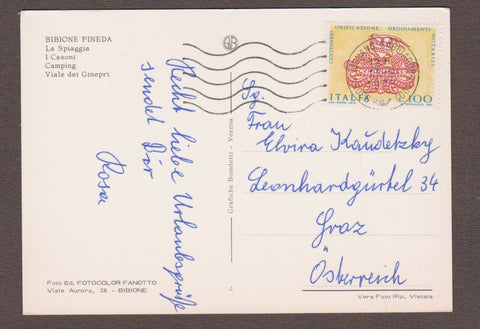 BIBIONE PINEDA
La Spiaggia
I Casoni
Camping
Viale dei Ginepri
Recht liebe Urlaubsgrüße
sendet Dir
Rosa
Foto Ed. FOTOCOLOR FANOTTO
Viale Aurora, 26 - BIBIONE
Grafiche Biondetti - Verona
CENTENARIO UNIFICAZIONE ORDINAMENTI NOTARILI
ITALIA £100
Sg.
Frau
Elvira Kaudetzky
Leonhardgürtel 34
Graz
Österreich
Vera Foto Rip. Vietata